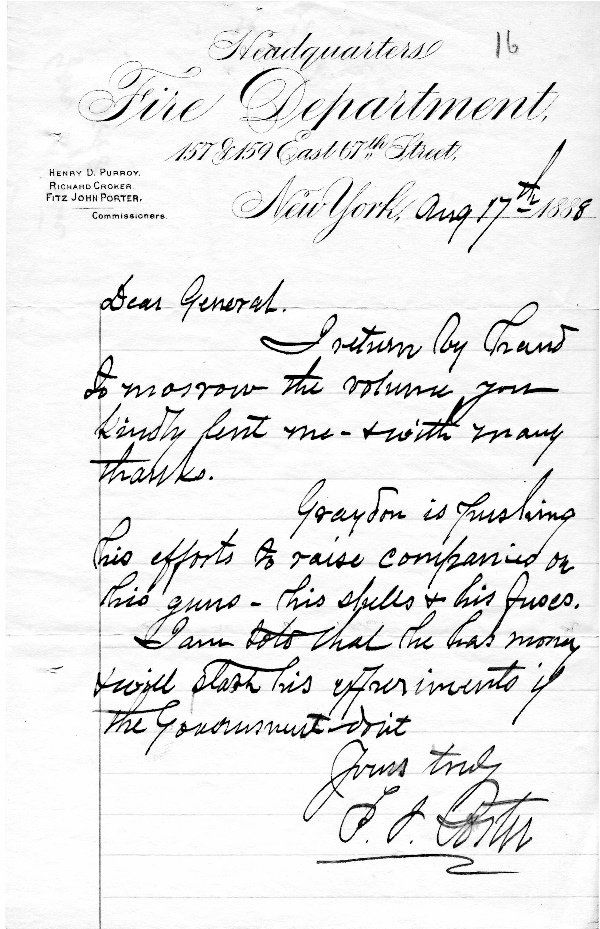 16
Headquarters
Fire Department,
157 & 159 East 67th Street,
HENRY D. PURROY.
RICHARD CROKER.
FITZ JOHN PORTER.
Commissioners.
New York, Aug 17th 1888
Dear General.
I return by hand
to morrow the volume you
kindly sent me - & with many
thanks.
Graydon is pushing
his efforts to raise companies on
his guns - his shells & his fuses.
I am told that he has money
& will start his experiments if
the Government dont
Yours truly
F. J. Porter